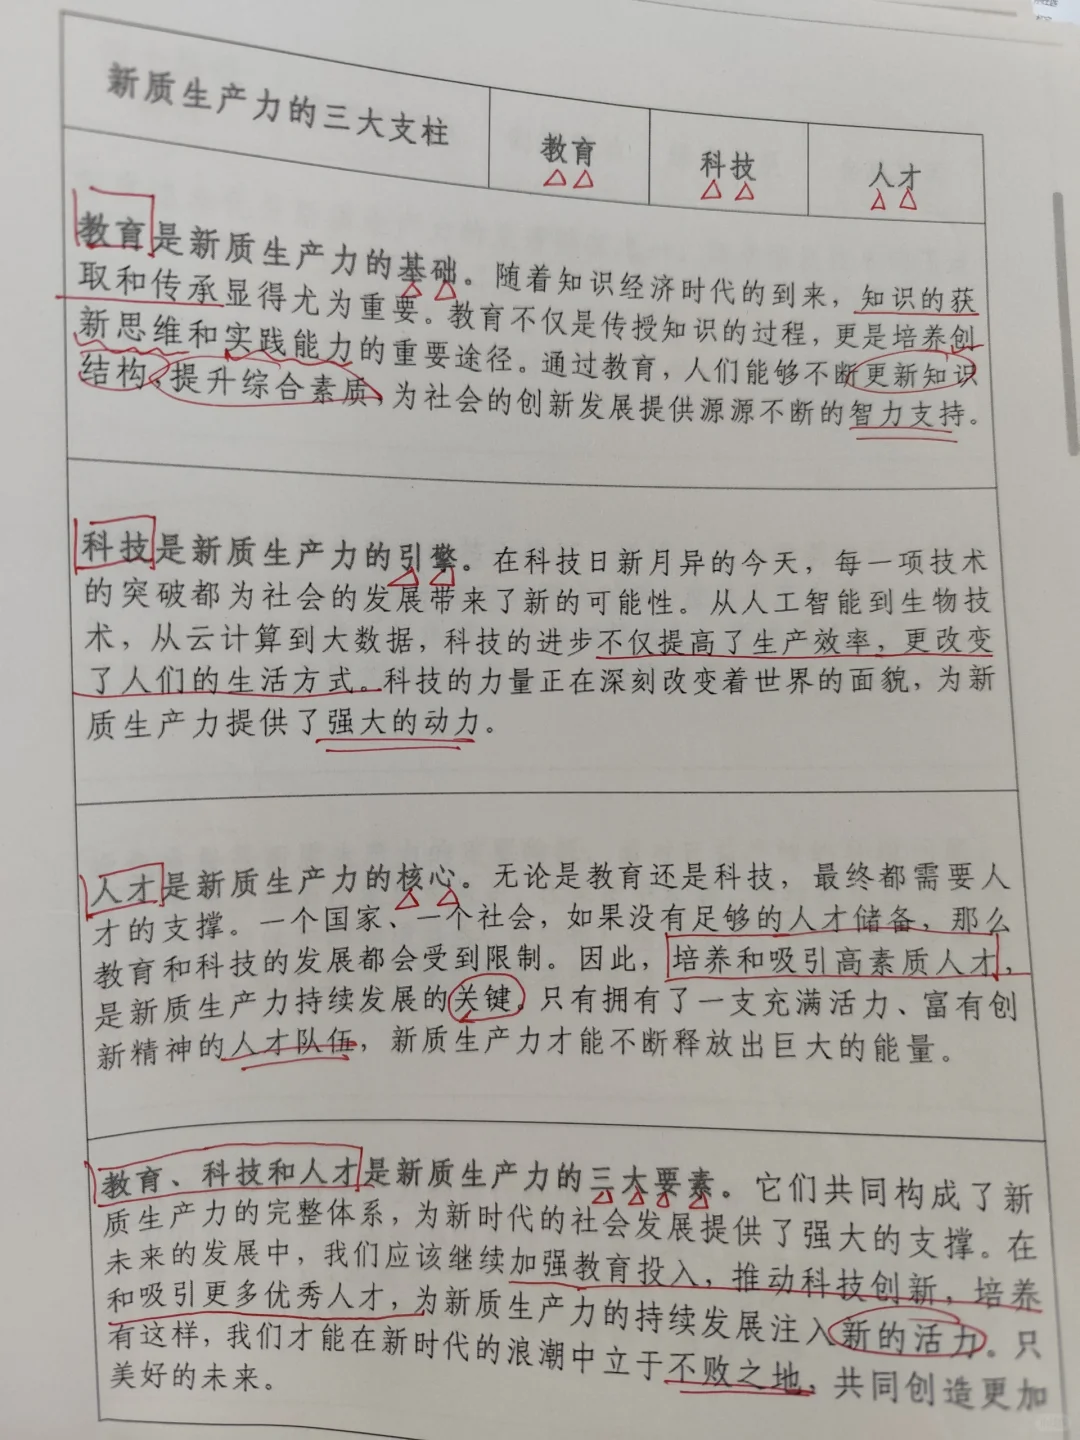 新质生产力的三大支柱
教育
科技
人才
教育是新质生产力的基础。随着知识经济时代的到来，知识的获
取和传承显得尤为重要。教育不仅是传授知识的过程，更是培养创
新思维和实践能力的重要途径。通过教育，人们能够不断更新知识
结构，提升综合素质，为社会的创新发展提供源源不断的智力支持。
科技是新质生产力的引擎。在科技日新月异的今天，每一项技术
的突破都为社会的发展带来了新的可能性。从人工智能到生物技
术，从云计算到大数据，科技的进步不仅提高了生产效率，更改变
了人们的生活方式。科技的力量正在深刻改变着世界的面貌，为新
质生产力提供了强大的动力。
人才是新质生产力的核心。无论是教育还是科技，最终都需要人
才的支撑。一个国家、一个社会，如果没有足够的人才储备，那么
教育和科技的发展都会受到限制。因此，培养和吸引高素质人才，
是新质生产力持续发展的关键。只有拥有了一支充满活力、富有创
新精神的人才队伍，新质生产力才能不断释放出巨大的能量。
教育、科技和人才是新质生产力的三大要素。它们共同构成了新
质生产力的完整体系，为新时代的社会发展提供了强大的支撑。在
未来的发展中，我们应该继续加强教育投入，推动科技创新，培养
和吸引更多优秀人才，为新质生产力的持续发展注入新的活力。只
有这样，我们才能在新时代的浪潮中立于不败之地，共同创造更加
美好的未来。